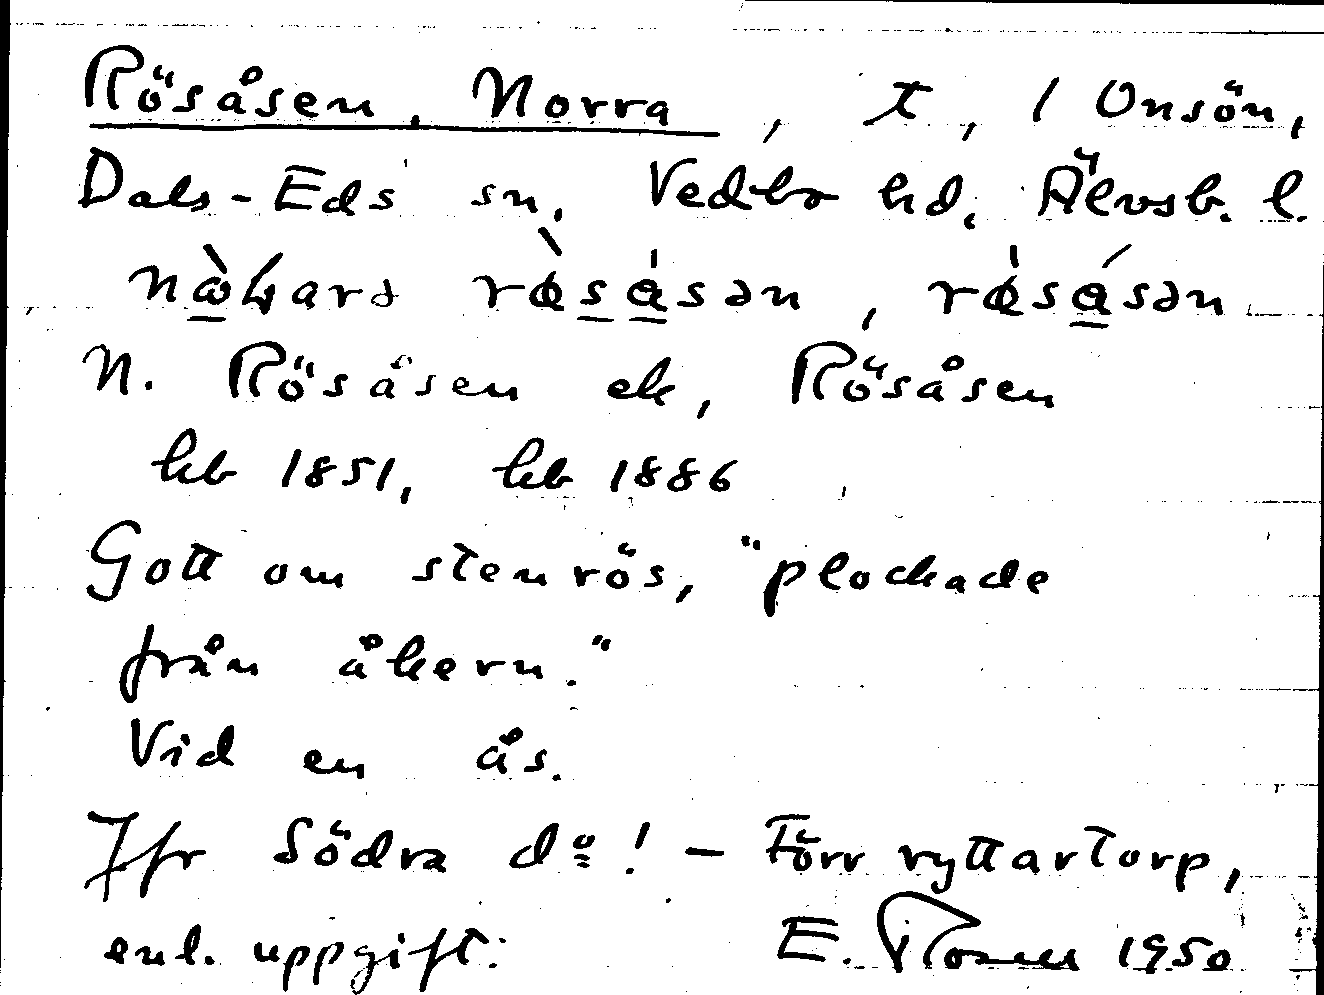 Rösåsen, Norra, t, 1 Onsön,
Dals-Eds sn. Vedbo hd. Älvsb. l.
N. Rösåsen ek, Rösåsen
hb 1851, hb 1886
Gott om stenrös, "plockade
från åkern."
Vid en ås.
Jfr Södra do! - Förr ryttartorp,
enl. uppgift. E. 1950